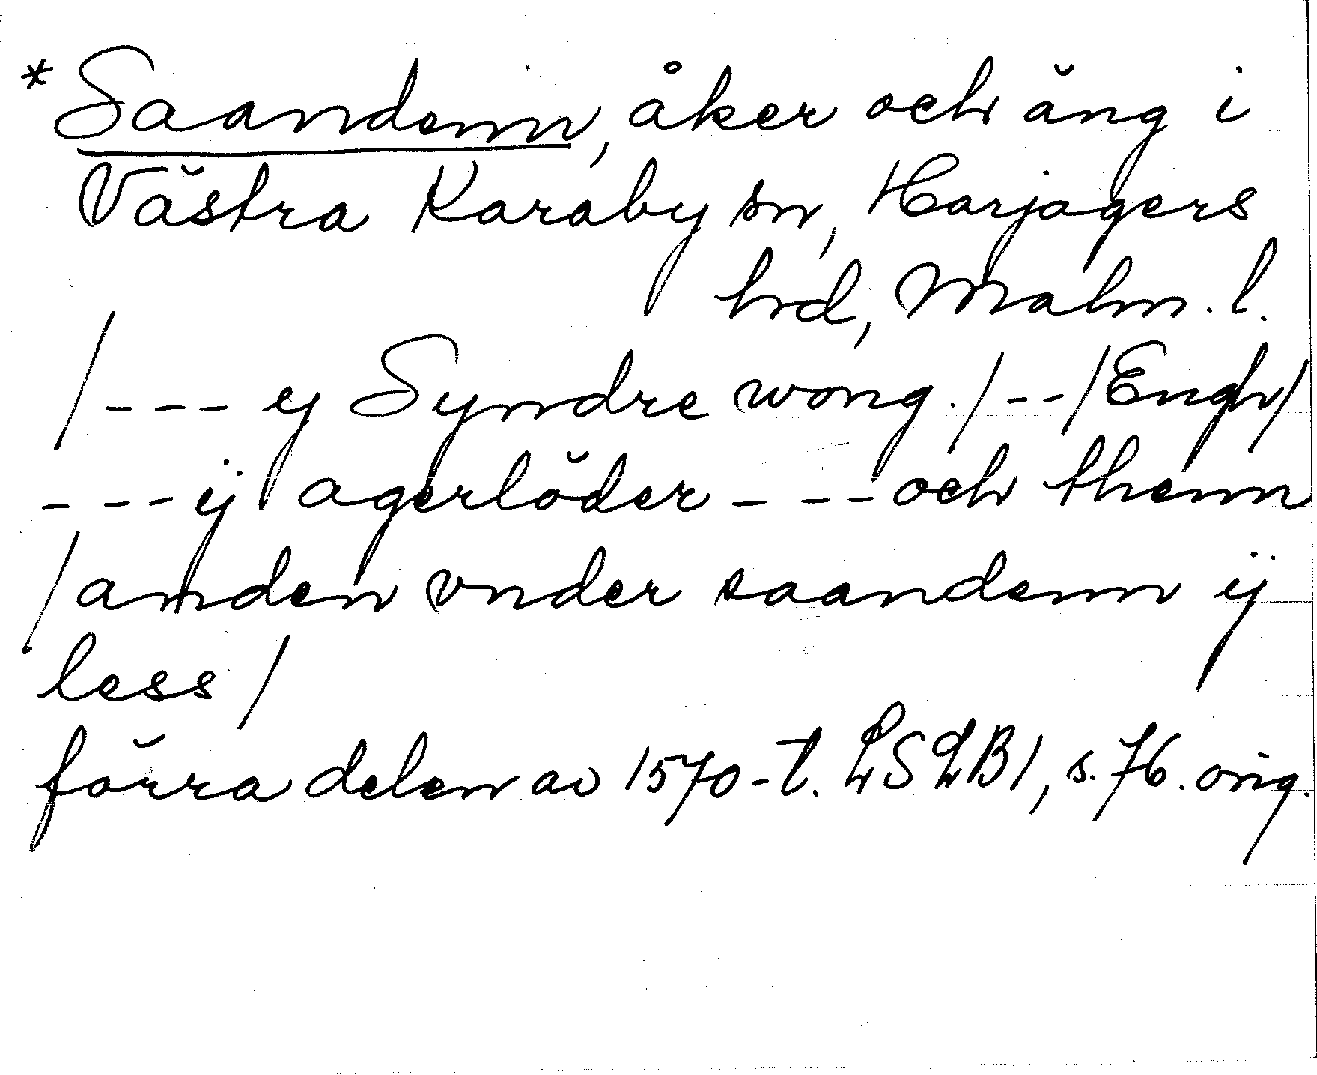 *Saandenn, åker och äng i
Västra Karaby sn, Harjagers
hrd, Malm. l.
/--- ej Syndre wong./--/Engh/
---ij agerlöder ---och thenn
/anden vnder saandenn ij
less/
förra delen av 1570-t. LSLB1, s. 76. orig.